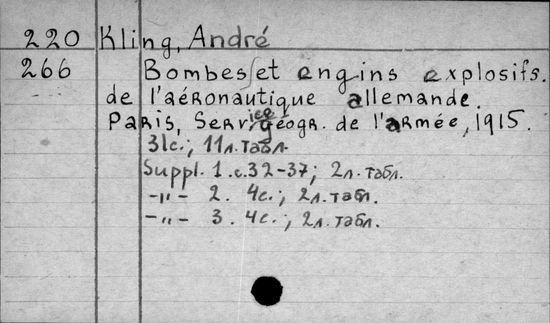 220 Kling, André
266 Bombes et engins explosifs.
de l'aéronautique allemande.
Paris, Service géogr. de l'armée, 1915.
31c.; 11л.табл.
Suppl. 1.с.32-37; 2л.табл.
-"- 2. 4с.; 2л.табл.
-"- 3. 4с.; 2л.табл.